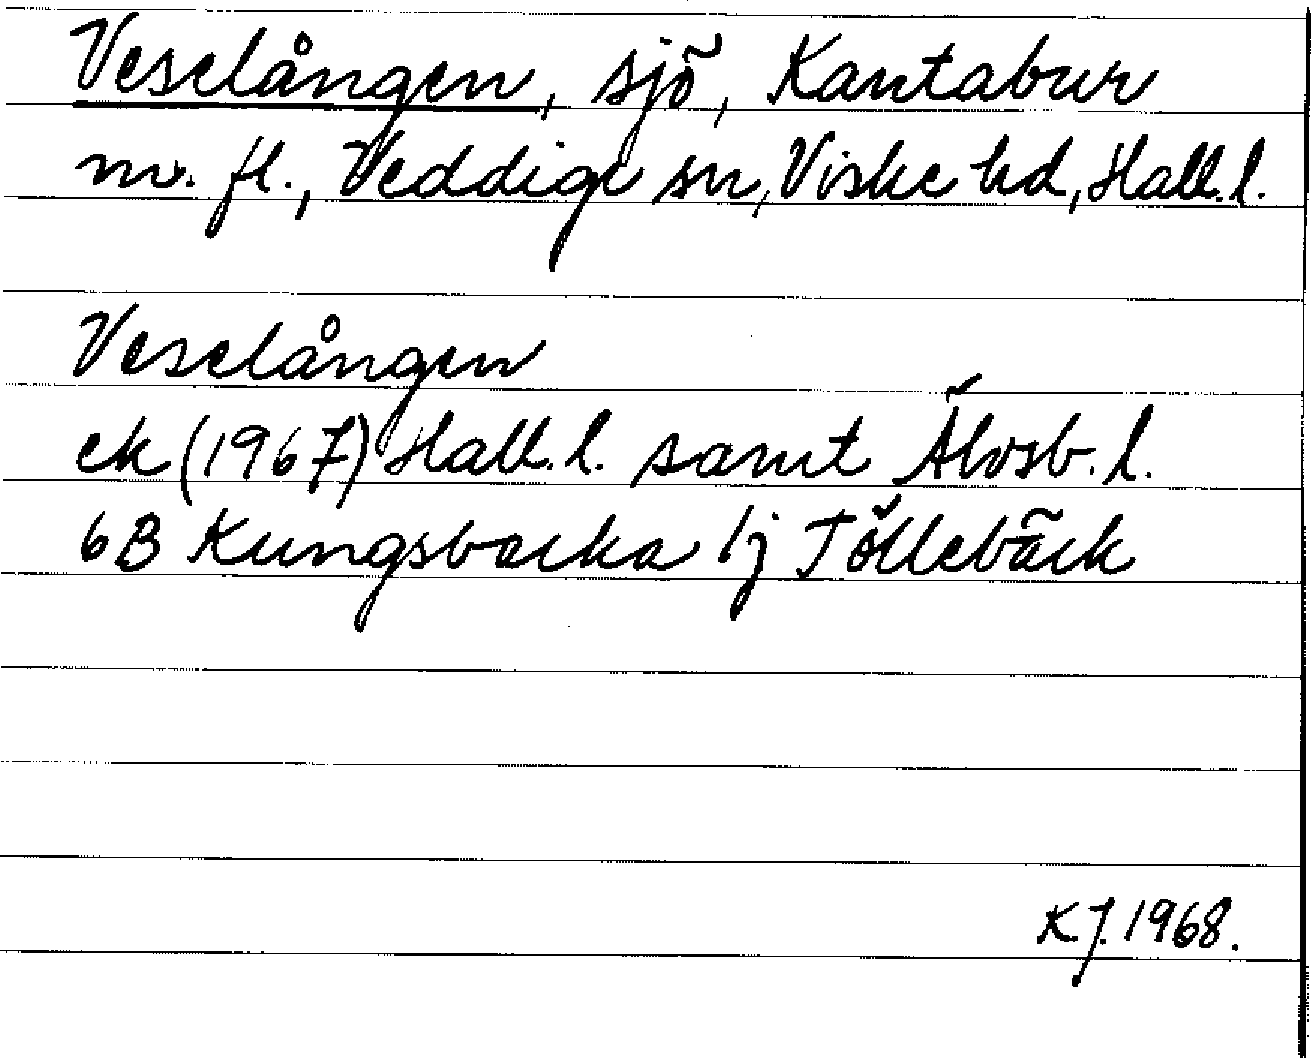 Veselången, sjö, Kantabur
m. fl., Veddige sn, Viske hd, Hall. l.
Veselången
ek (1967) Hall. l. samt Älvsb. l.
6B Kungsbacka 1j Töllebäck
K.J. 1968.